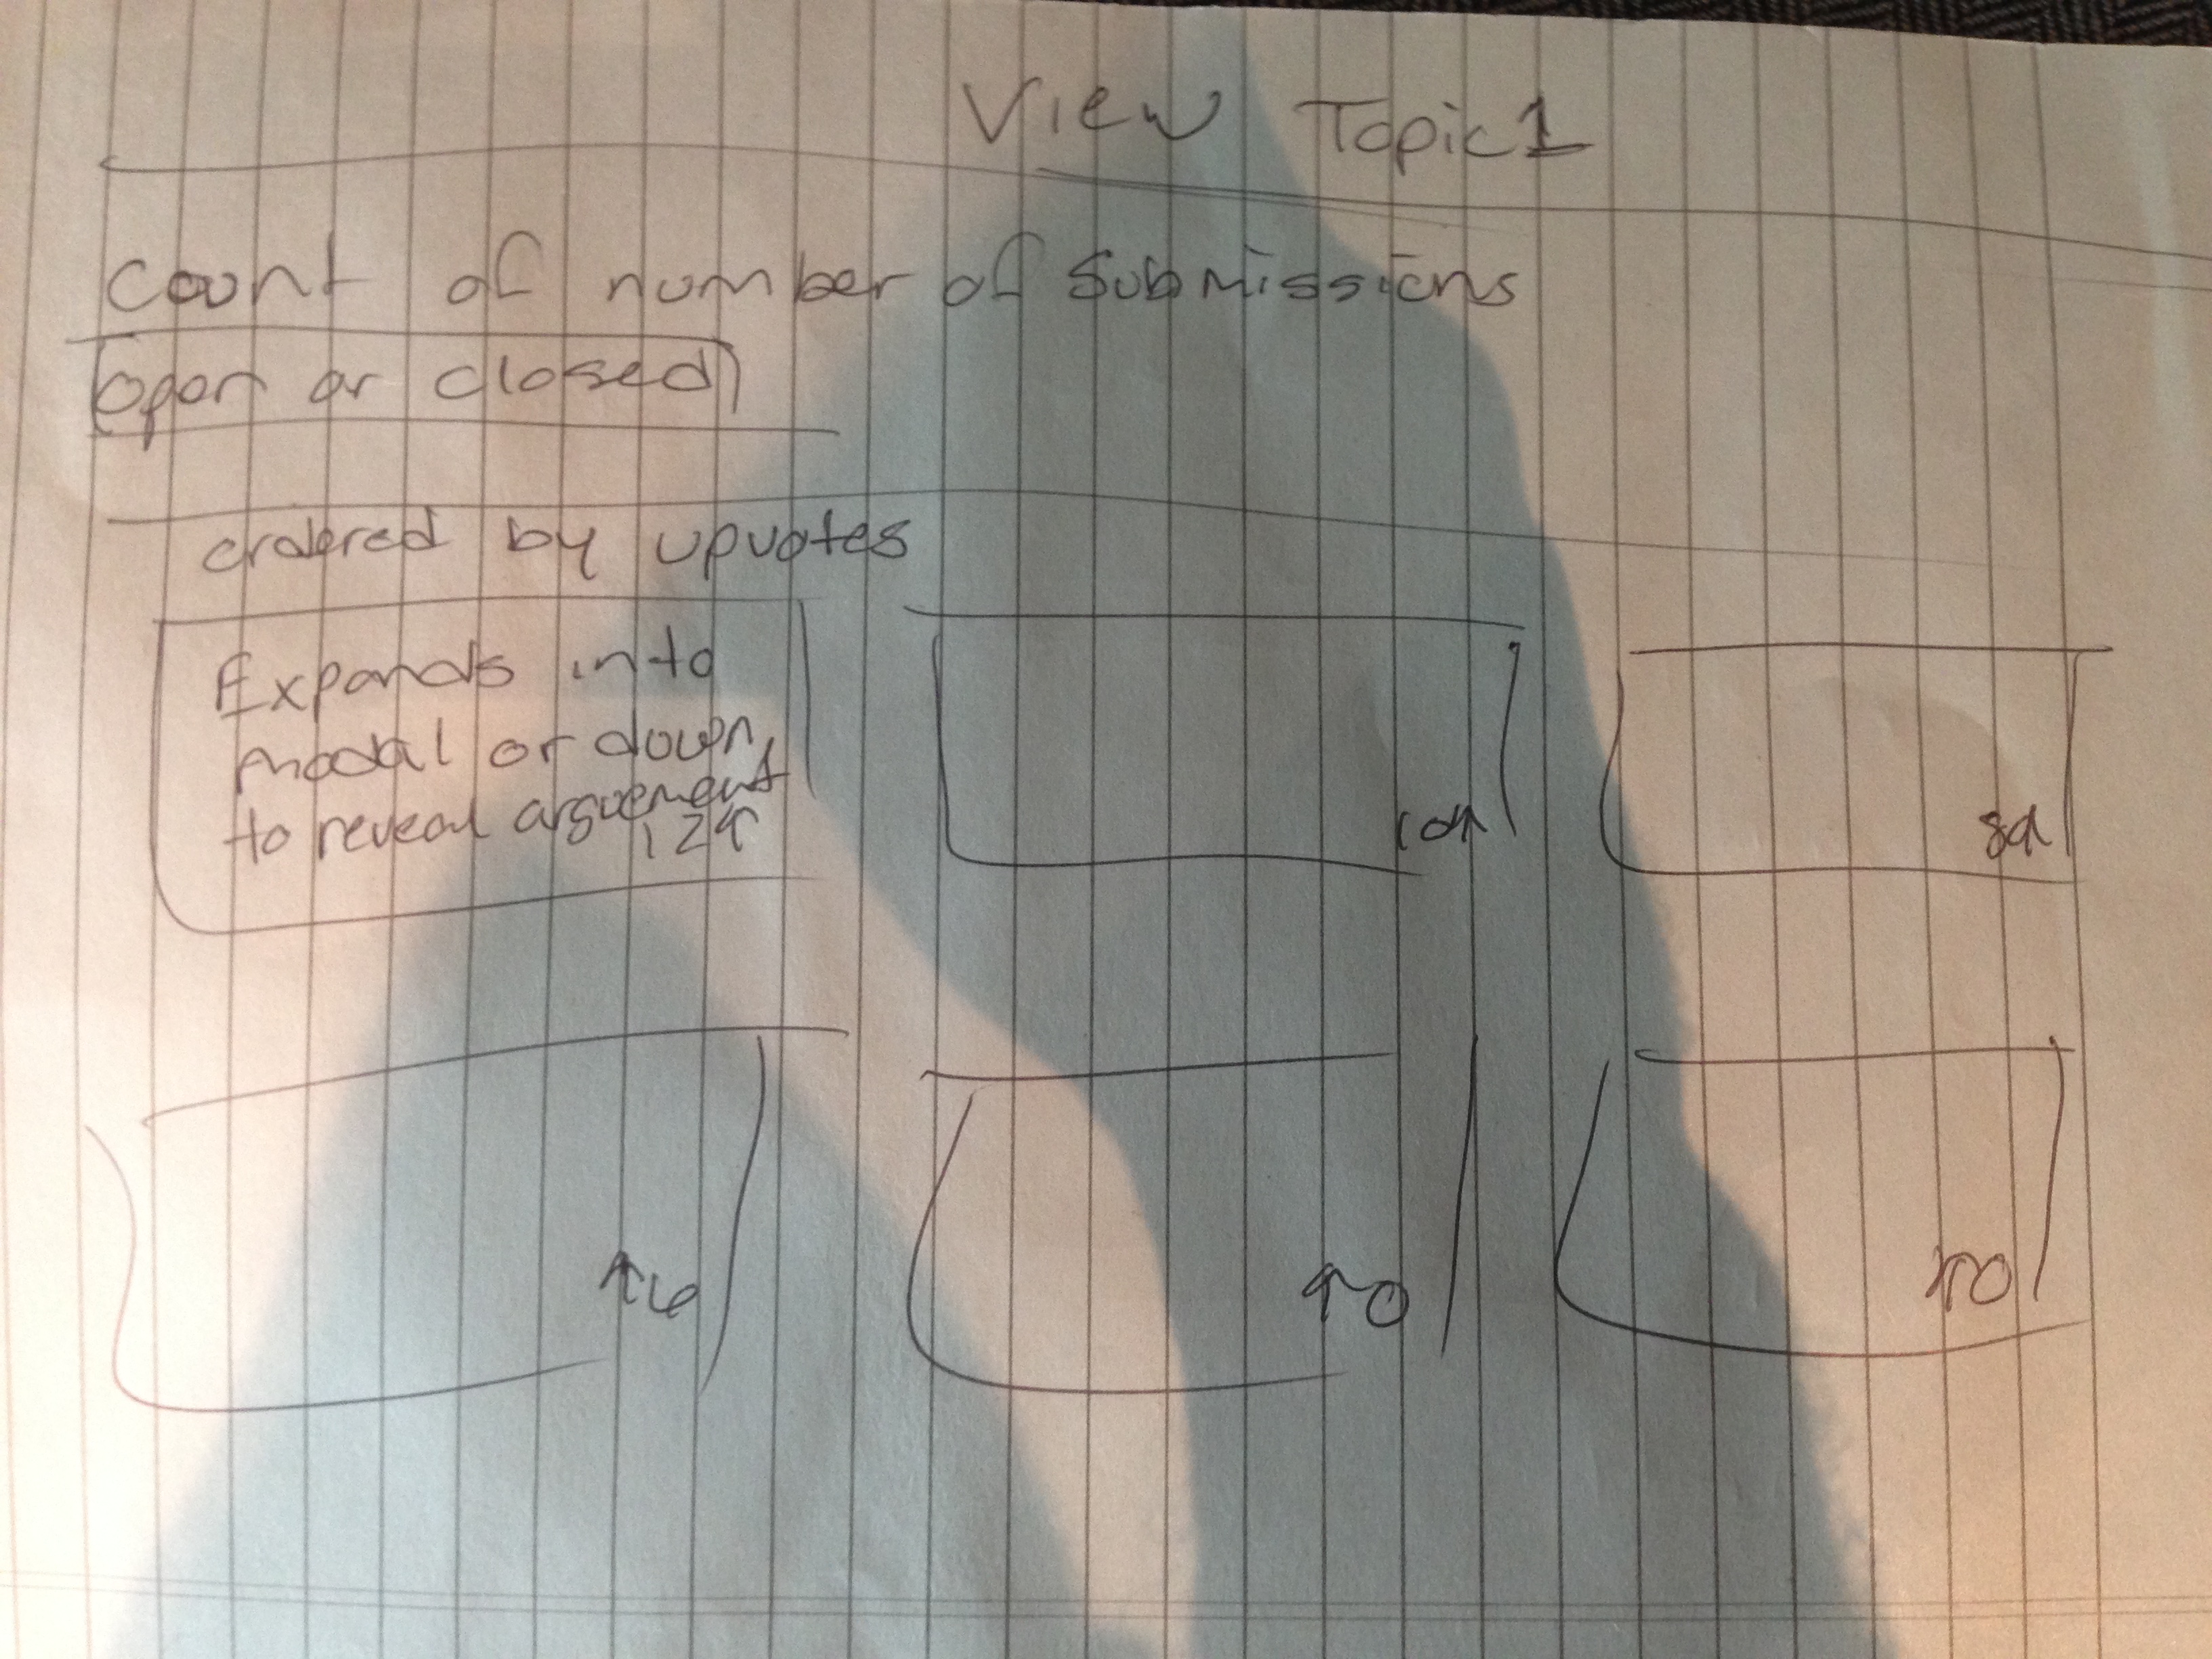 View Topic 1
Count of number of submissions
Open or closed
ordered by upvotes
Expands into
modal or down
to reveal arguement